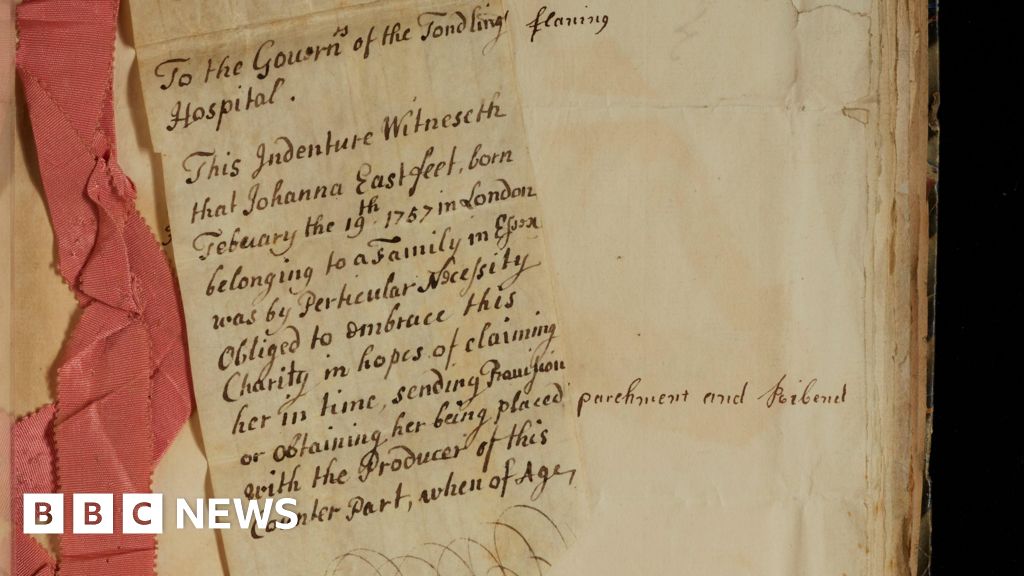 To the Gouern^rs of the Fondling flaning
Hospital.
This Indenture Witneseth
that Johanna Eastfeet, born
Febuary the 19^th. 1757 in London
belonging to a Family in Essex
was by Perticular Necessity
Obliged to embrace this
Charity in hopes of claiming
her in time, sending Provision
or obtaining her being placed parchment and Ribend
with the Producer of this
Counter Part, when of Age,
BBC NEWS